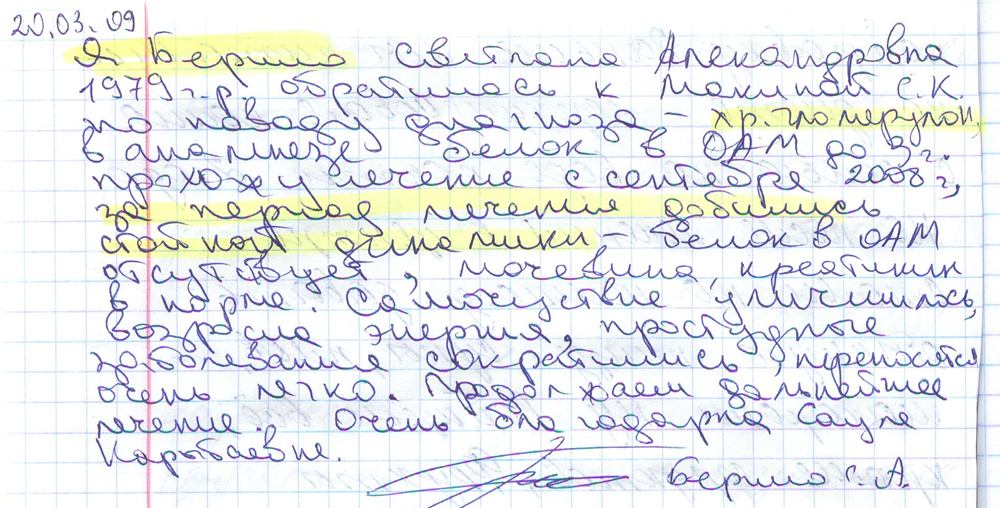 20.03.09
Я Бершо Светлана Александровна
1979 г.р. обратилась к Макиной С.К.
по поводу диагноза – хр. гломерулон,
в анамнезе белок в ОАМ до 3 г.
прохожу лечение с сентября 2008 г,
за период лечения добились
стойкой динамики – белок в ОАМ
отсутствует, мочевина, креатинин
в норме. Самочуствие улучшилось,
возросла энергия, простудные
заболевания сократились, переносятся
очень легко. Продолжаем дальнейшее
лечение. Очень благодарна Сауле
Карыбаевне.
Бершо С.А.